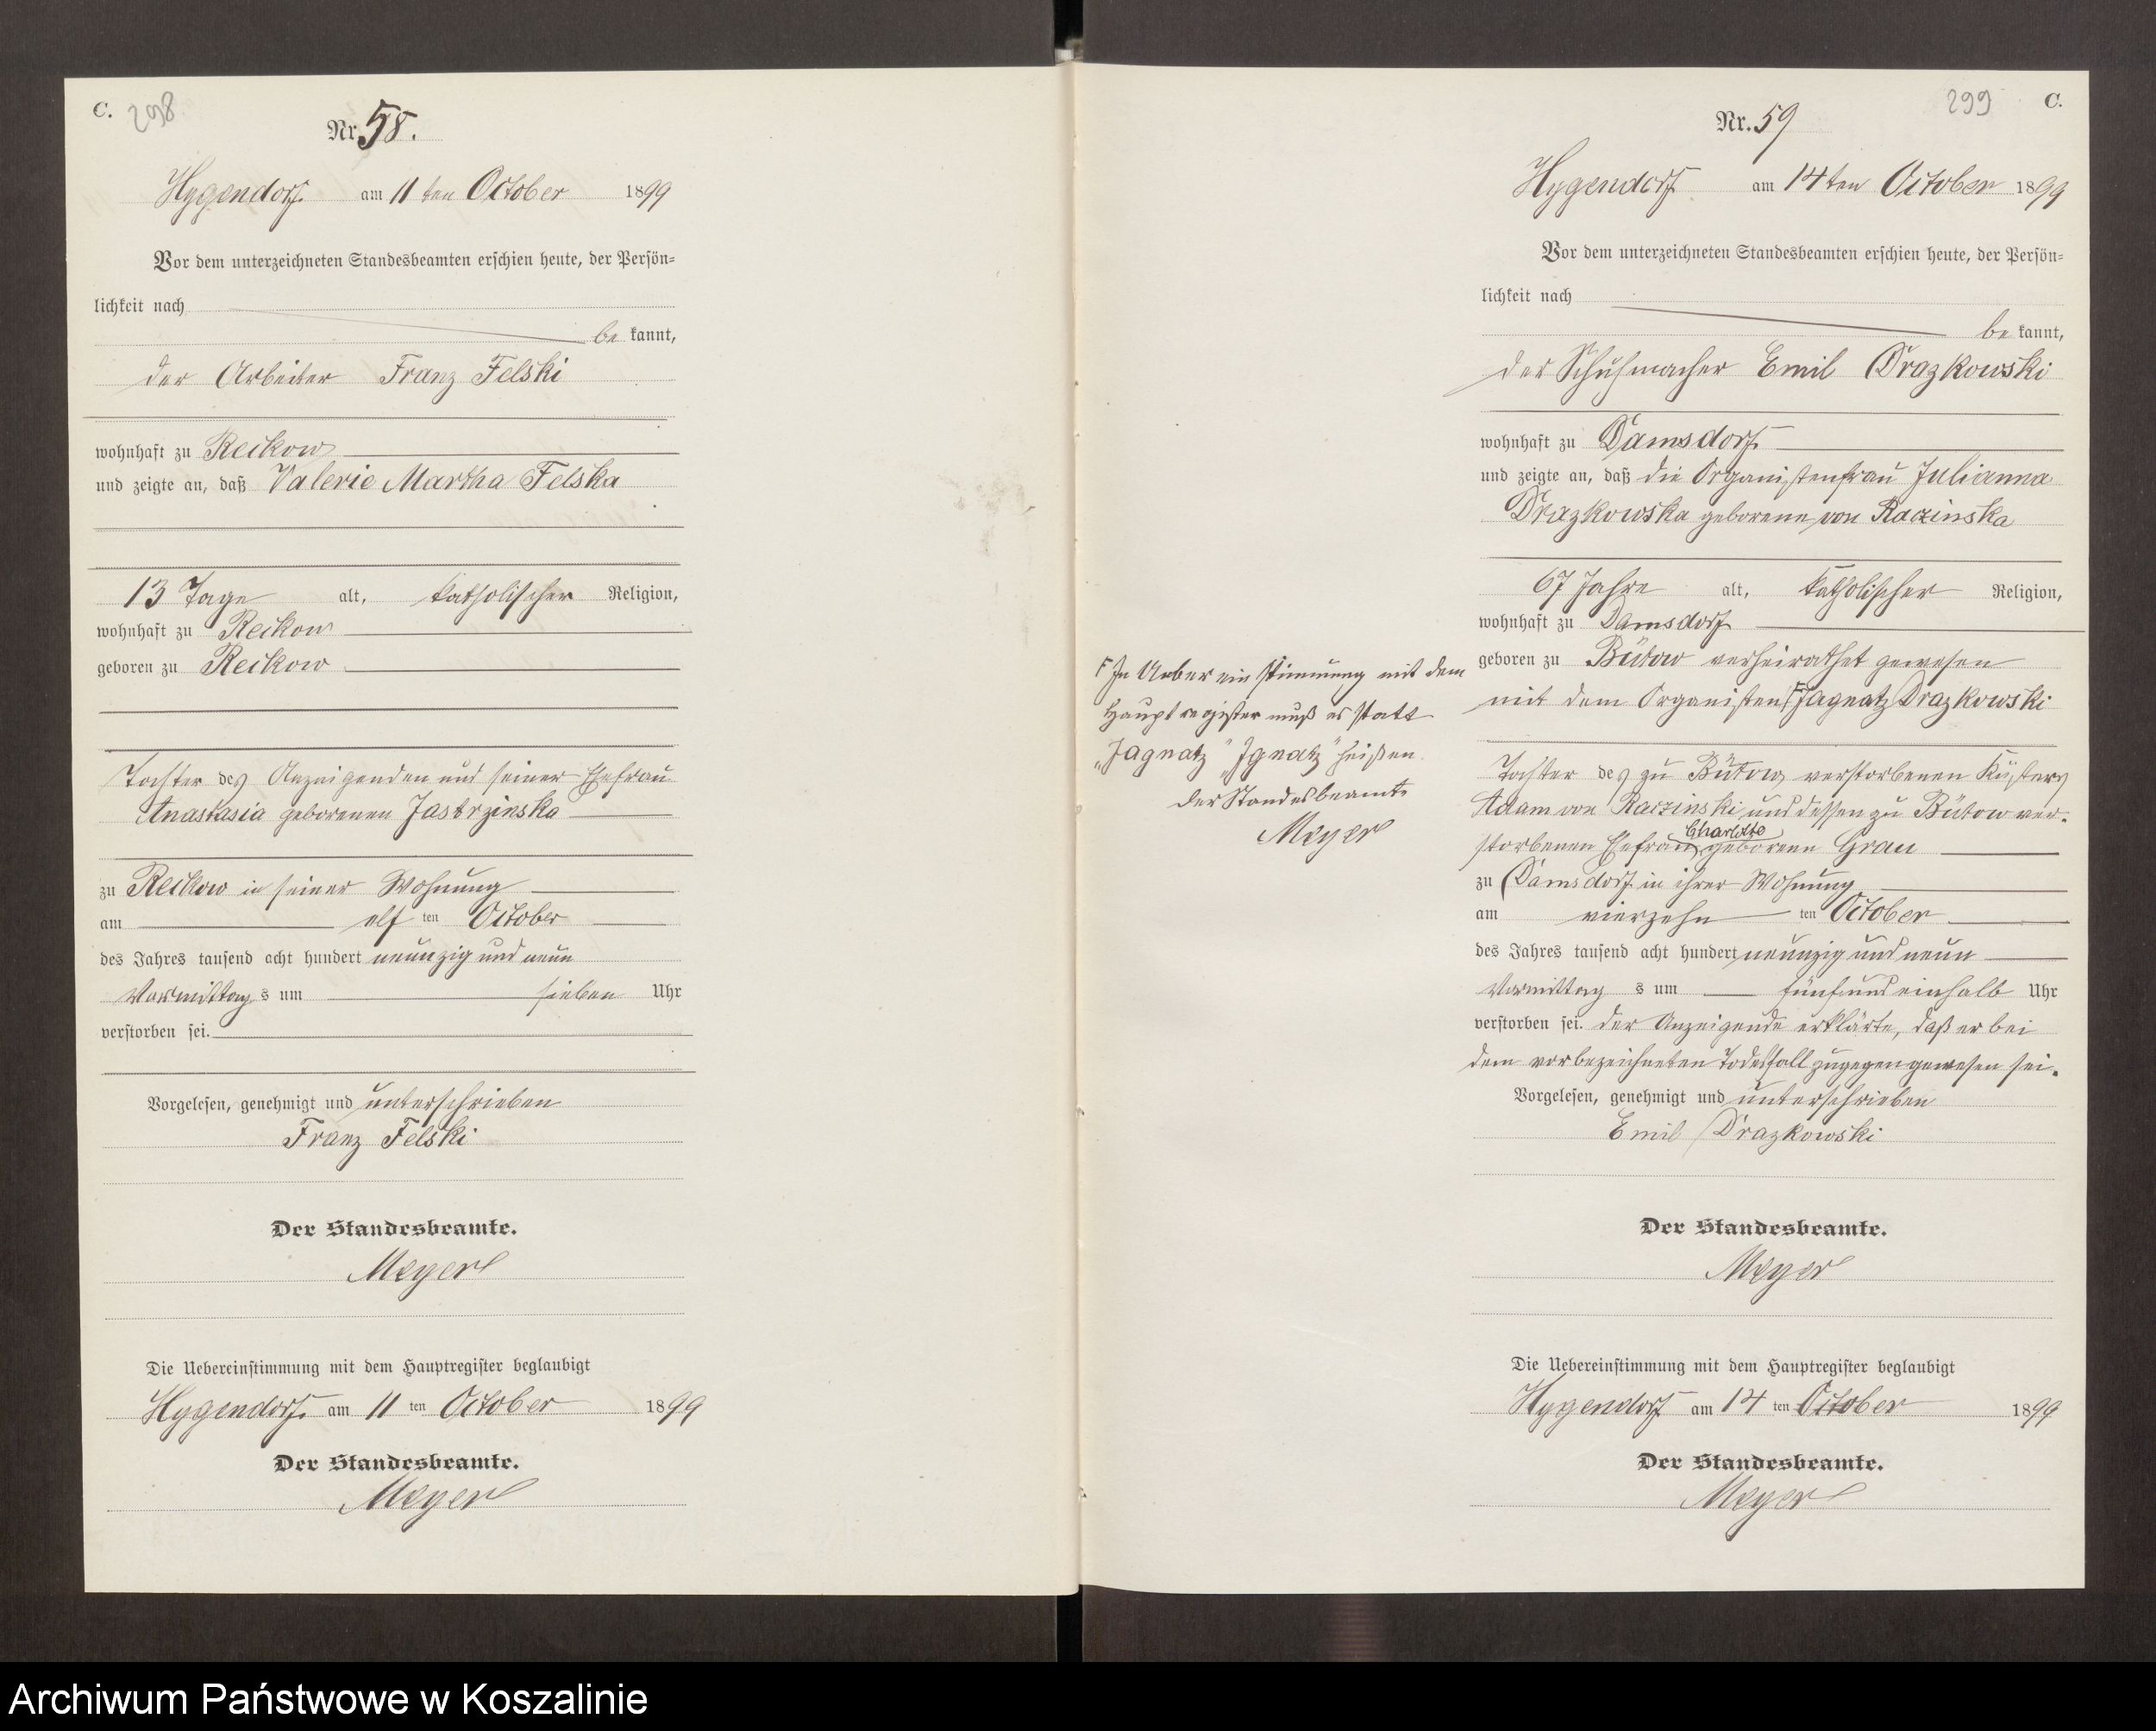 C. 298.
Nr. 58.
Hygendorf am 11 ten October 1899
Vor dem unterzeichneten Standesbeamten erschien heute, der Persön=
lichkeit nach
be kannt,
der Arbeiter Franz Felski
wohnhaft zu Reckow
und zeigte an, daß Valerie Martha Felska
13 Tage alt, katholischer Religion,
wohnhaft zu Reckow
geboren zu Reckow
Tochter des Anzeigenden und seiner Ehefrau
Anastasia geborenen Jastrzinska
zu Reckow in seiner Wohnung
am elf ten October
des Jahres tausend acht hundert neunzig und neun
Vormittag s um sieben Uhr
verstorben sei.
Vorgelesen, genehmigt und unterschrieben
Franz Felski
Der Standesbeamte.
Meyer
Die Uebereinstimmung mit dem Hauptregister beglaubigt
Hygendorf am 11 ten October 1899
Der Standesbeamte.
Meyer
299 C.
Nr. 59
Hygendorf am 14 ten October 1899
Vor dem unterzeichneten Standesbeamten erschien heute, der Persön=
lichkeit nach
be kannt,
der Schuhmacher Emil Drazkowski
wohnhaft zu Damsdorf
und zeigte an, daß die Organistenfrau Julianna
Drazkowska geborene von Raczinska
67 Jahre alt, katholischer Religion,
wohnhaft zu Damsdorf
geboren zu Bütow verheirathet gewesen
mit dem Organisten F Jagnatz Drazkowski
F In Uebereinstimmung mit dem
Hauptregister muß es statt
„Jagnatz" „Ignatz" heißen.
Der Standesbeamte
Meyer
Tochter des zu Bütow verstorbenen Küsters
Adam von Raczinski und dessen zu Bütow ver-
storbenen Ehefrau Charlotte geborene Grau
zu Damsdorf in ihrer Wohnung
am vierzehn ten October
des Jahres tausend acht hundert neunzig und neun
Vormittag s um fünf und einhalb Uhr
verstorben sei. Der Anzeigende erklärte, daß er bei
dem vorbezeichneten Todesfall zugegen gewesen sei.
Vorgelesen, genehmigt und unterschrieben
Emil Drazkowski
Der Standesbeamte.
Meyer
Die Uebereinstimmung mit dem Hauptregister beglaubigt
Hygendorf am 14 ten October 1899
Der Standesbeamte.
Meyer
Archiwum Państwowe w Koszalinie